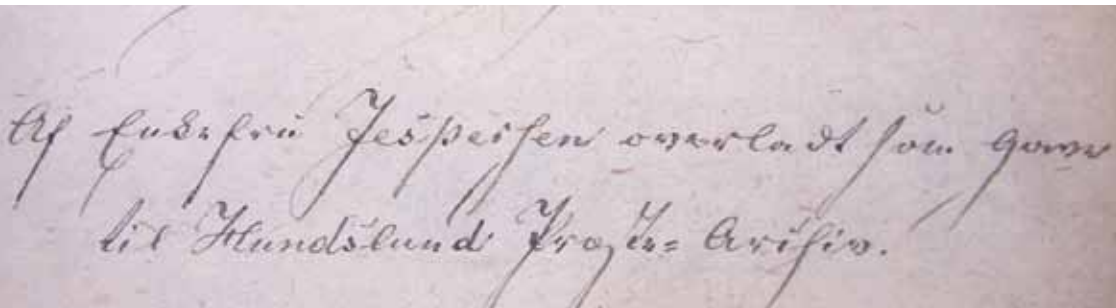 Af Enkefru Jespersen overladt som Gave
til Hundslund Præste= Archiv.